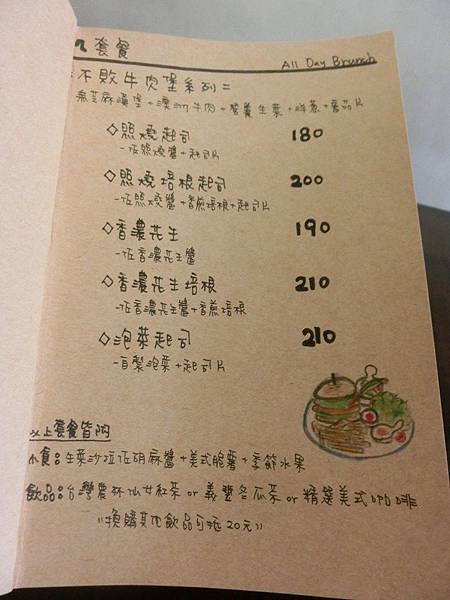 套餐
All Day Brunch
不敗牛肉堡系列=
黑芝麻漢堡+澳洲牛肉+營養生菜+洋蔥+番茄片
◇照燒起司 180
-佐照燒醬+起司片
◇照燒培根起司 200
-佐照燒醬+香煎培根+起司片
◇香濃花生 190
-佐香濃花生醬
◇香濃花生培根 210
-佐香濃花生醬+香煎培根
◇泡菜起司 210
-自製泡菜+起司片
以上套餐皆附
小食:生菜沙拉佐胡麻醬+美式脆薯+季節水果
飲品:台灣農林仙女紅茶 or 義豐冬瓜茶 or 精選美式咖啡
"換購其他飲品可抵20元"